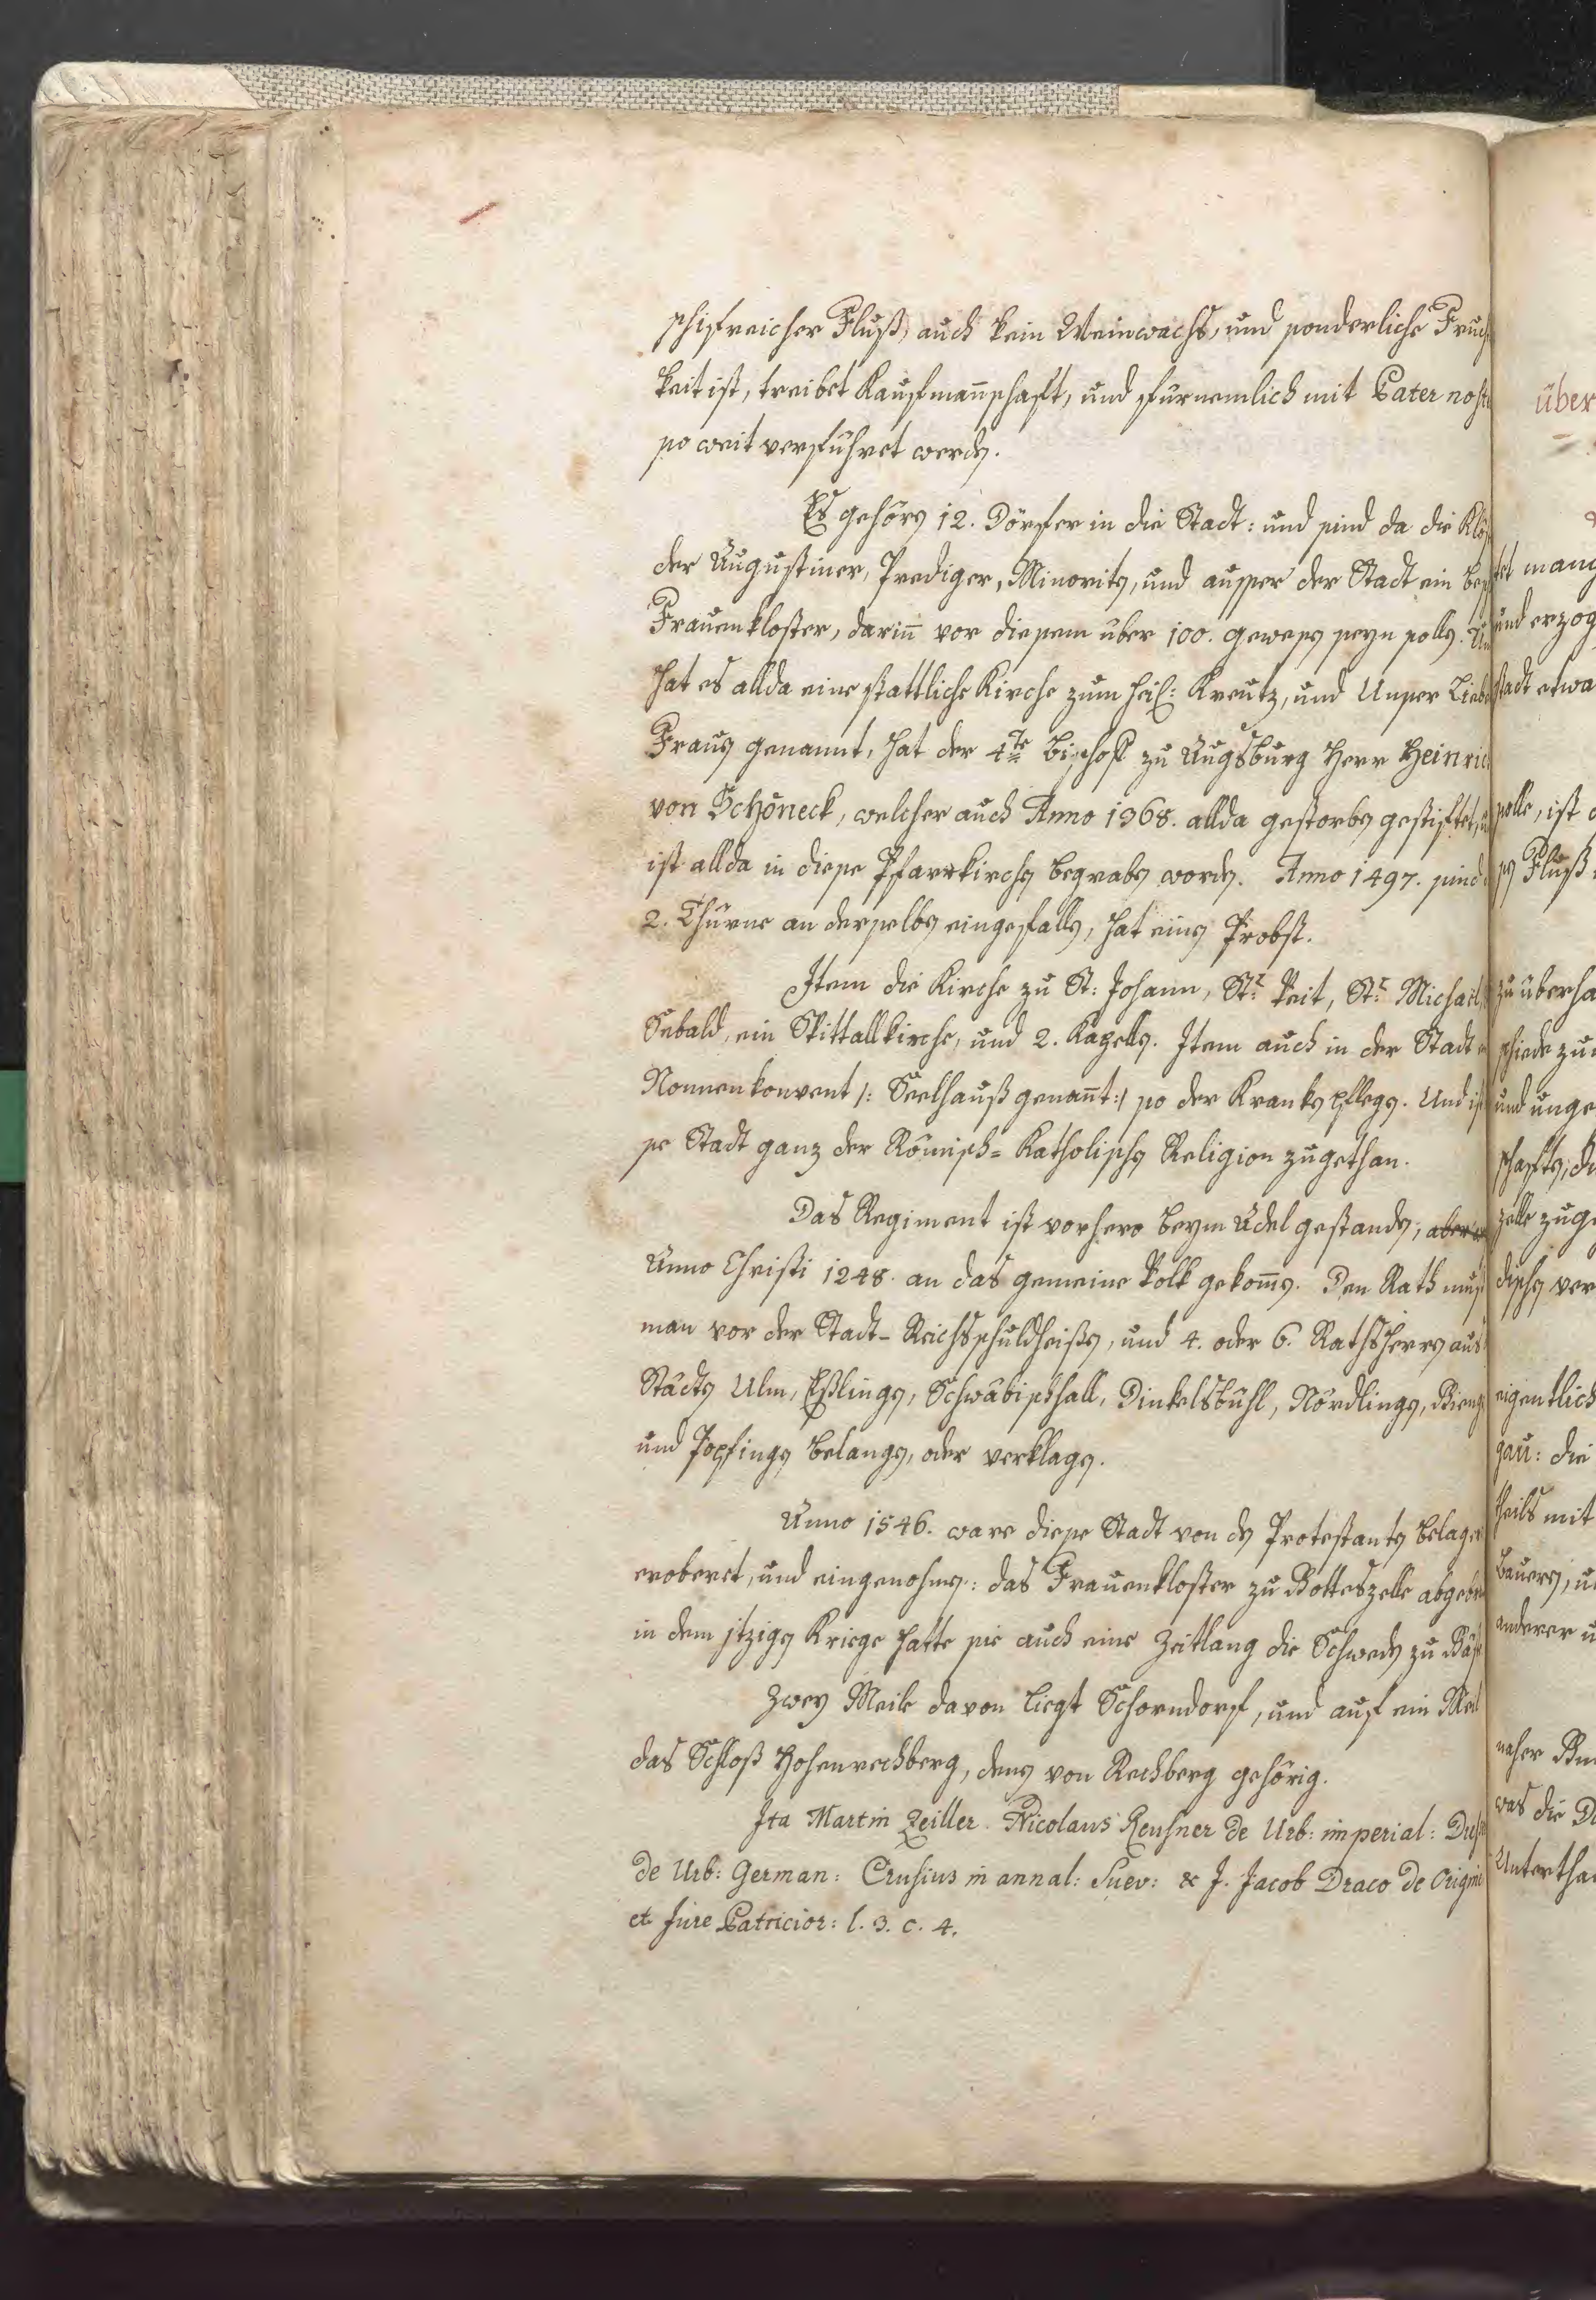 schifreicher Fluß, auch kein Weinwachs, und sonderliche Fruch
keit ist, treibet Kaufmañschaft, und fürnemlich mit Pater nost
so weit verführet werden.
Es gehören 12. Dörfer in die Stadt: und sind da die Klös
der Augustiner, Prediger, Minoriten, und ausser der Stadt ein bes
Frauenkloster, dariñ vor diesem über 100. gewesen seyn sollen. Un
hat es allda eine stattliche Kirche zum heil: Kreutz, und Unser Lieb
Frauen genannt, hat der 4te Bischoff zu Augsburg Herr Heinric
von Schöneck, welcher auch Anno 1368. allda gestorben gestiftet, u
ist allda in diese Pfarrkirchen begraben worden. Anno 1497. sind
2. Thürne an derselben eingefallen, hat einen Probst.
Item die Kirche zu St: Johann, St: Veit, St: Michael
Sebald, ein Spittallkirche, und 2. Kapellen. Item auch in der Stadt
Nonnenkonvent /: Seelhauß genañt :/ so der Kranken pflegen. Und ist
se Stadt ganz der Römisch= Katholischen Religion zugethan.
Das Regiment ist vorhero beym Adel gestanden, aber
Anno Christi 1248. an das gemeine Volk gekom̃en. Den Rath muß
man vor der Stadt- Reichsschuldheißen, und 4. oder 6. Rathsherren aus
Städten Ulm, Eßlingen, Schwäbischhall, Dinkelsbühl, Nördlingen, Gieng
und Popfingen belangen, oder verklagen.
Anno 1546. ware diese Stadt von den Protestanten belager
eroberet, und eingenohmen: das Frauenkloster zu Gotteszelle abgebr
in dem itzigen Kriege hatte sie auch eine Zeitlang die Schweden zu Gäst
Zwey Meile davon liegt Schorndorf, und auf ein Meil
das Schloß Hohenrechberg, denen von Rechberg gehörig.
Ita Martin Zeiller. Nicolaus Reusner de Urb: imperial: Dus
de Urb: German: Crusius in annal: Suev: & J. Jacob Draco de Origine
et Jure Patricior: l. 3. c. 4.
über
tet manc
und erzog
stadt etwa
solle, ist
sen Fluß
zu überha
schiede zu
und unge
schaften, di
zelle zuge
dischen ver
eigentlich
gäu: die
theils mit
Bauern, u
anderer u
naher
was die
Unterthan